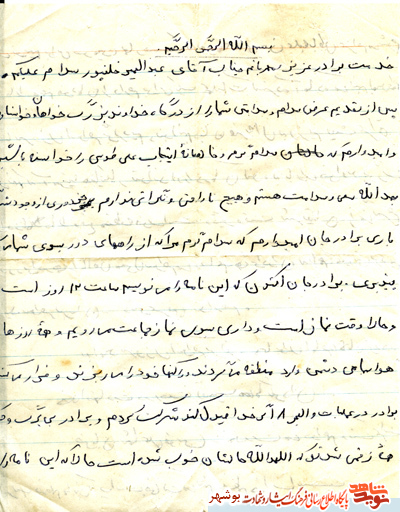 بسم الله الرحمن الرحیم
خدمت برادر عزیز و مهربانم جناب آقای عبدالحمید خلیلپور سلام علیکم
پس از تقدیم عرض سلام و سلامتی شما را از درگاه خداوند بزرگ خواهان و خواستارم
و امیدوارم که سلام گرم و صمیمانه اینجانب علی طوسی را خواسته باشید
بحمدالله صحیح و سلامت هستم و هیچ ناراحتی و نگرانی ندارم بجز دوری از وجود شما
باری برادر جان امیدوارم که سلام گرم مرا که از راههای دور بسوی شما
بپذیری. برادر جان اکنون که این نامه را می نویسم ساعت ۱۲ روز است
و حالا وقت نماز است و داریم بسوی نماز جماعت میرویم و همه روزها
هواپیماهای دشمن وارد منطقه میشوند
برادر در عملیات والفجر ۸ اگر خدا قبول کند شرکت کردم و برادر
زخمی شد که الحمدالله حالشان خوب شده است حالا که این نامه را
نوید شاهد
پایگاه اطلاع رسانی فرهنگ ایثار و شهادت بوشهر